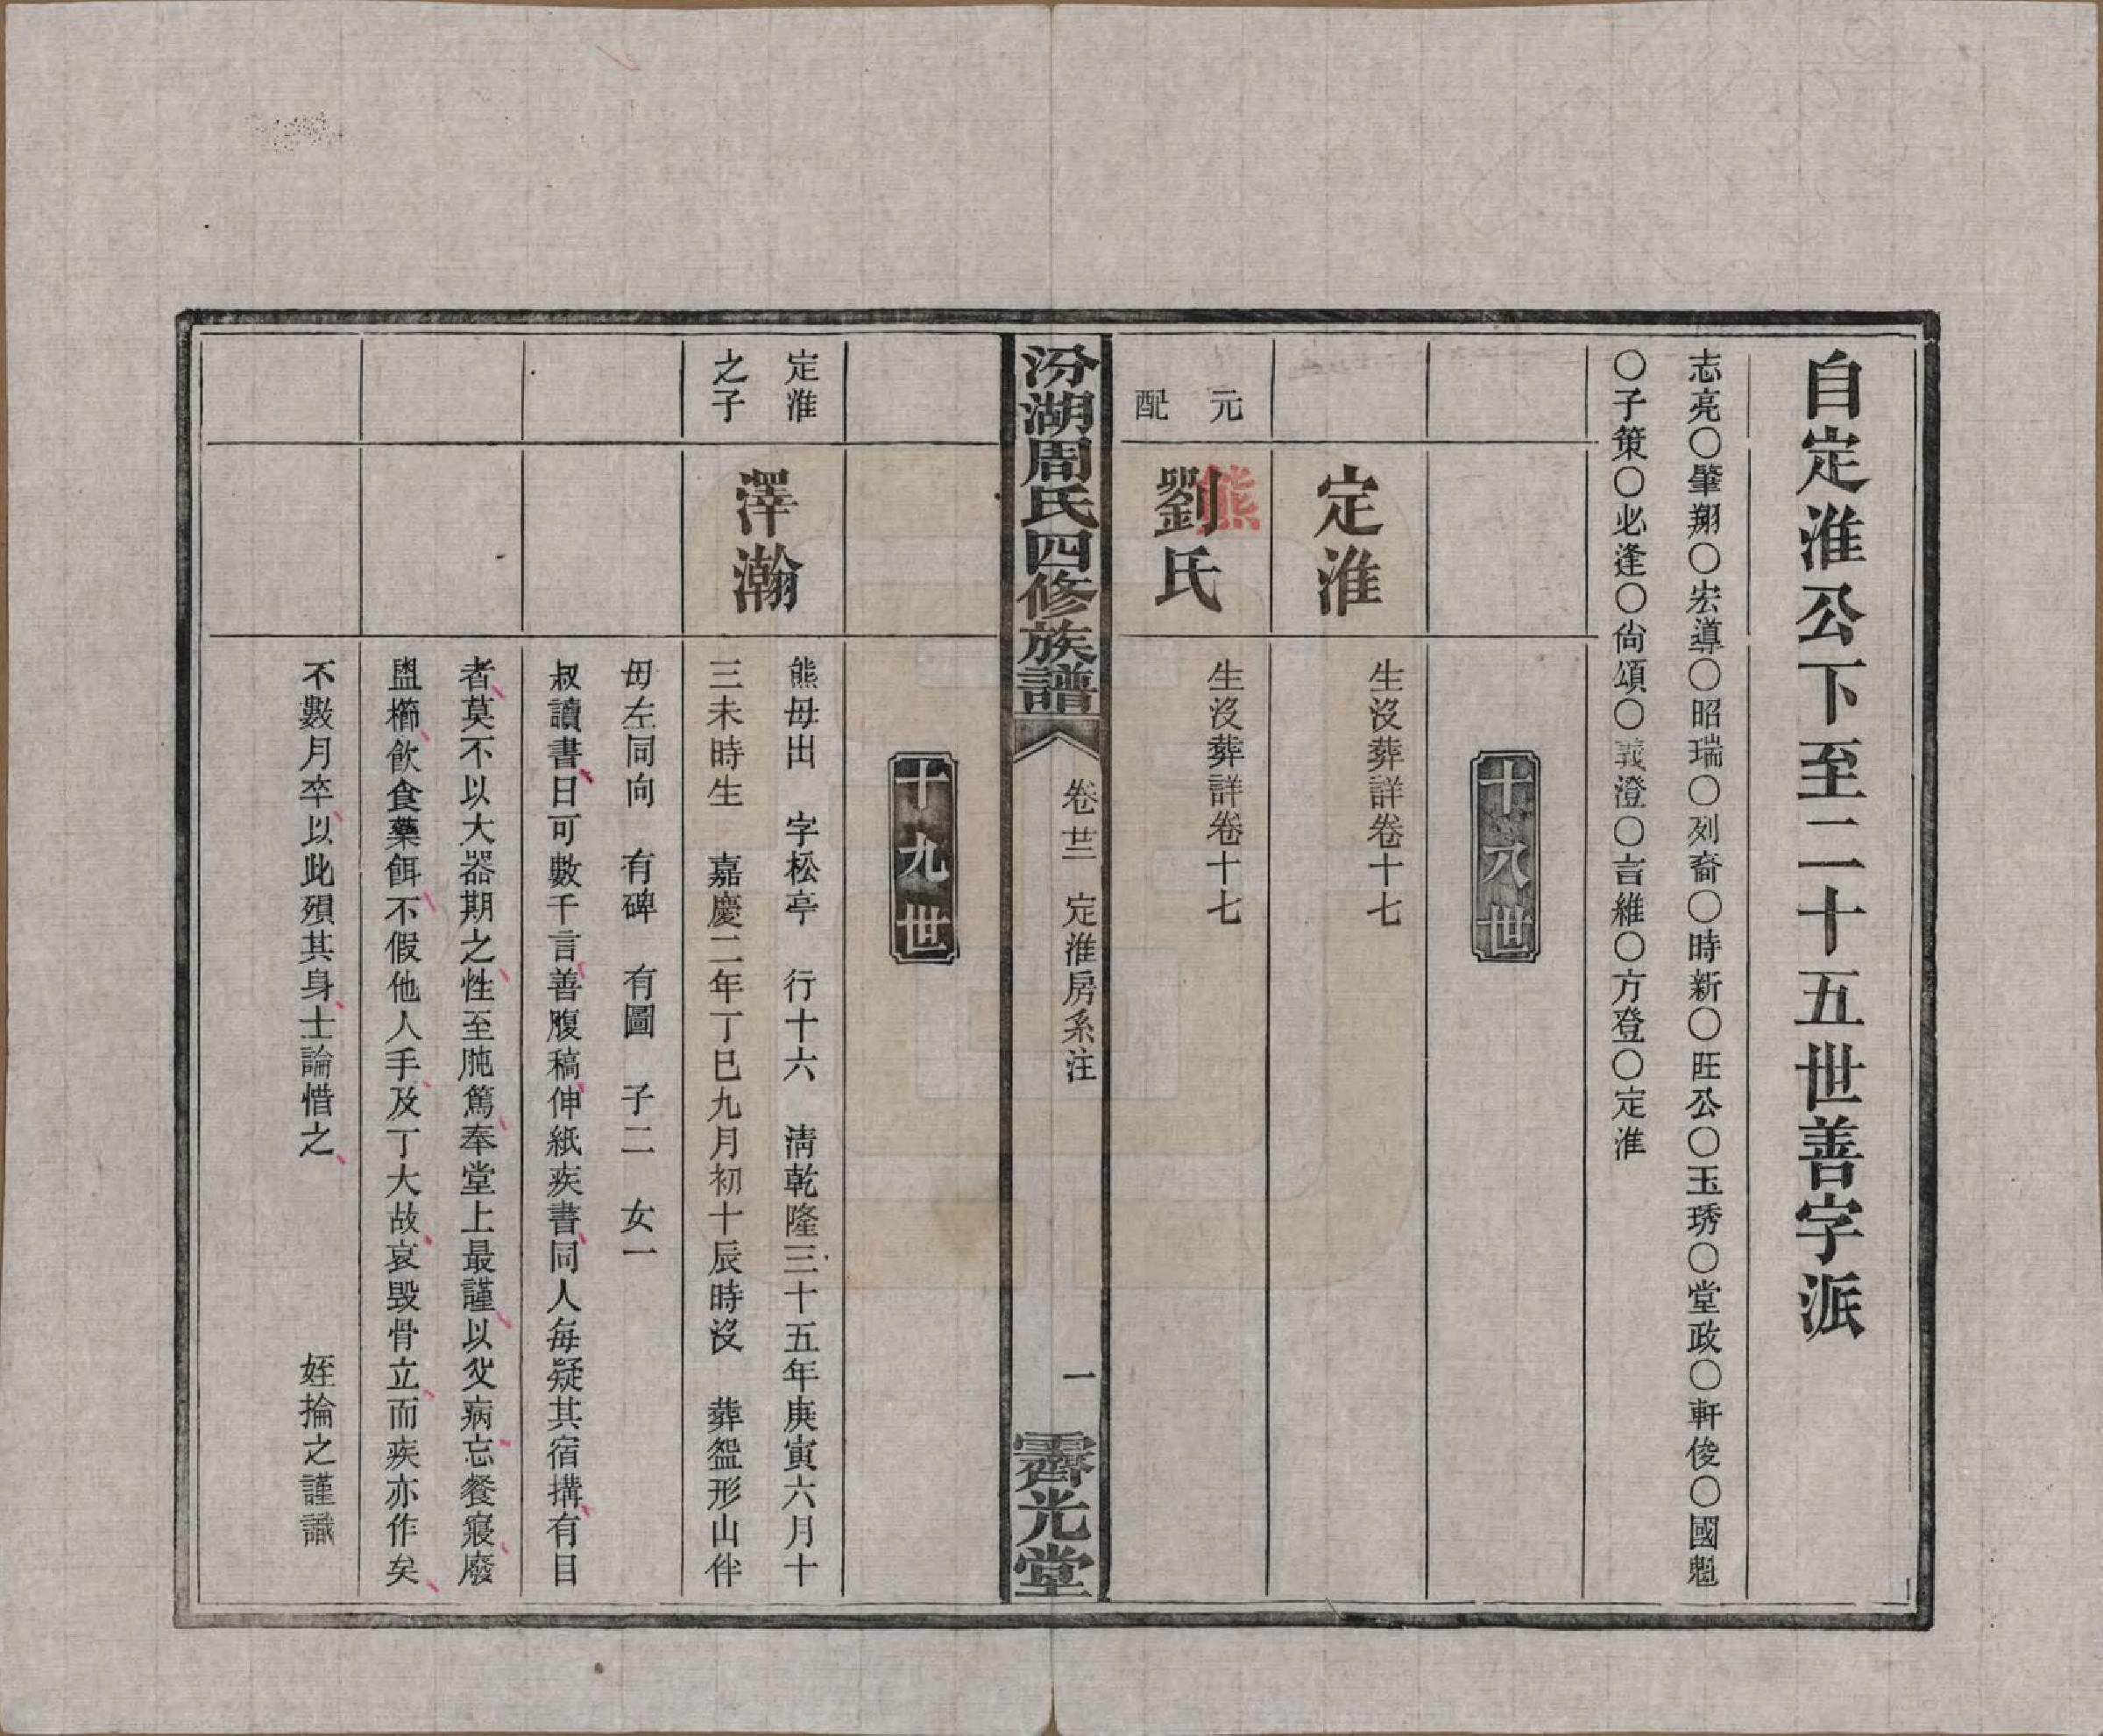 自定淮公下至二十五世善字派
志亮〇肇翔〇宏導〇昭瑞〇列裔〇時新〇旺公〇玉琇〇堂政〇軒俊〇國魁
〇子策〇必逢〇尙頌〇義澄〇言維〇方登〇定淮
十八世
定淮
生沒葬詳卷十七
元配
劉氏
熊
生沒葬詳卷十七
汾湖周氏四修族譜
卷廿三 定淮房系注
一
霽光堂
十九世
定淮
之子
澤瀚
熊母出 字松亭 行十六 淸乾隆三十五年庚寅六月十
三未時生 嘉慶二年丁巳九月初十辰時沒 葬盌形山伴
母左同向 有碑 有圖 子二 女一
叔讀書日可數千言善腹稿伸紙疾書同人每疑其宿搆有目
者莫不以大器期之性至肫篤奉堂上最謹以父病忘餐寢廢
盥櫛飮食藥餌不假他人手及丁大故哀毁骨立而疾亦作矣
不數月卒以此殞其身士論惜之 姪掄之謹識